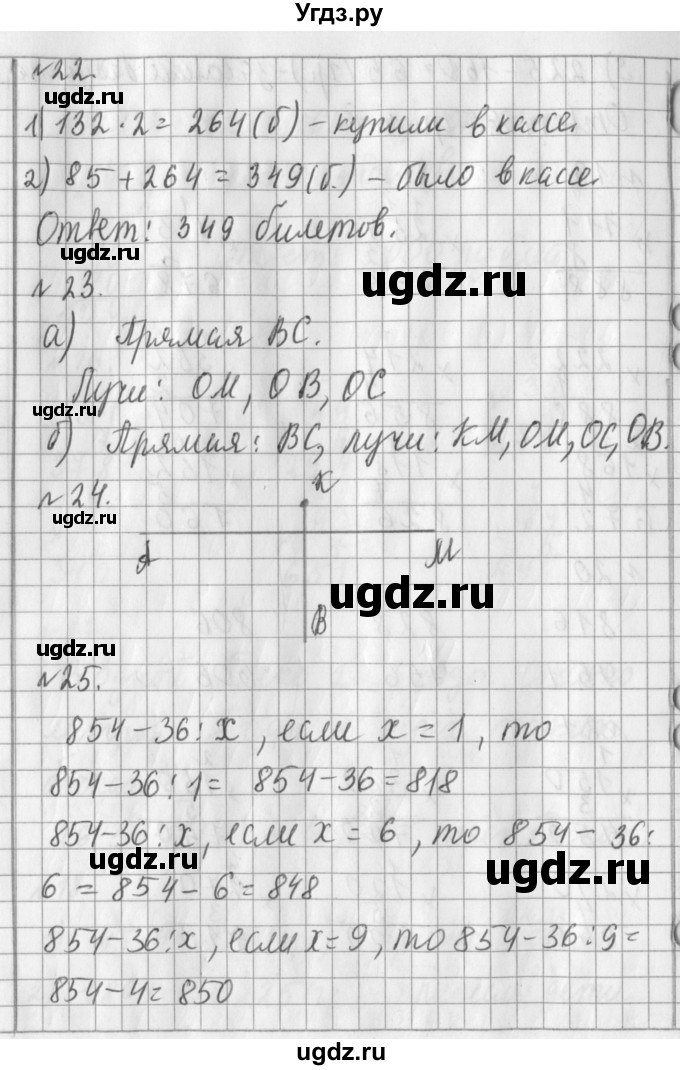 Угдз.ру
№22.
ugdz.ru
1) 132 · 2 = 264 (б) – купили в кассе.
2) 85 + 264 = 349 (б.) – было в кассе.
Ответ: 349 билетов.
ugdz.ru
№23.
ugdz.ru
а) Прямая ВС.
Лучи: ОМ, ОВ, ОС
ugdz.ru
б) Прямая: ВС, лучи: КМ, ОМ, ОС, ОВ.
№24.
К
ugdz.ru
А М
ugdz.ru
В
ugdz.ru
№25.
854 – 36 : х, если х = 1, то
854 – 36 : 1 = 854 – 36 = 818
854 – 36 : х, если х = 6, то 854 – 36 :
ugdz.ru
ugdz.ru
6 = 854 – 6 = 848
854 – 36 : х, если х = 9, то 854 – 36 : 9 =
854 – 4 = 850
ugdz.ru